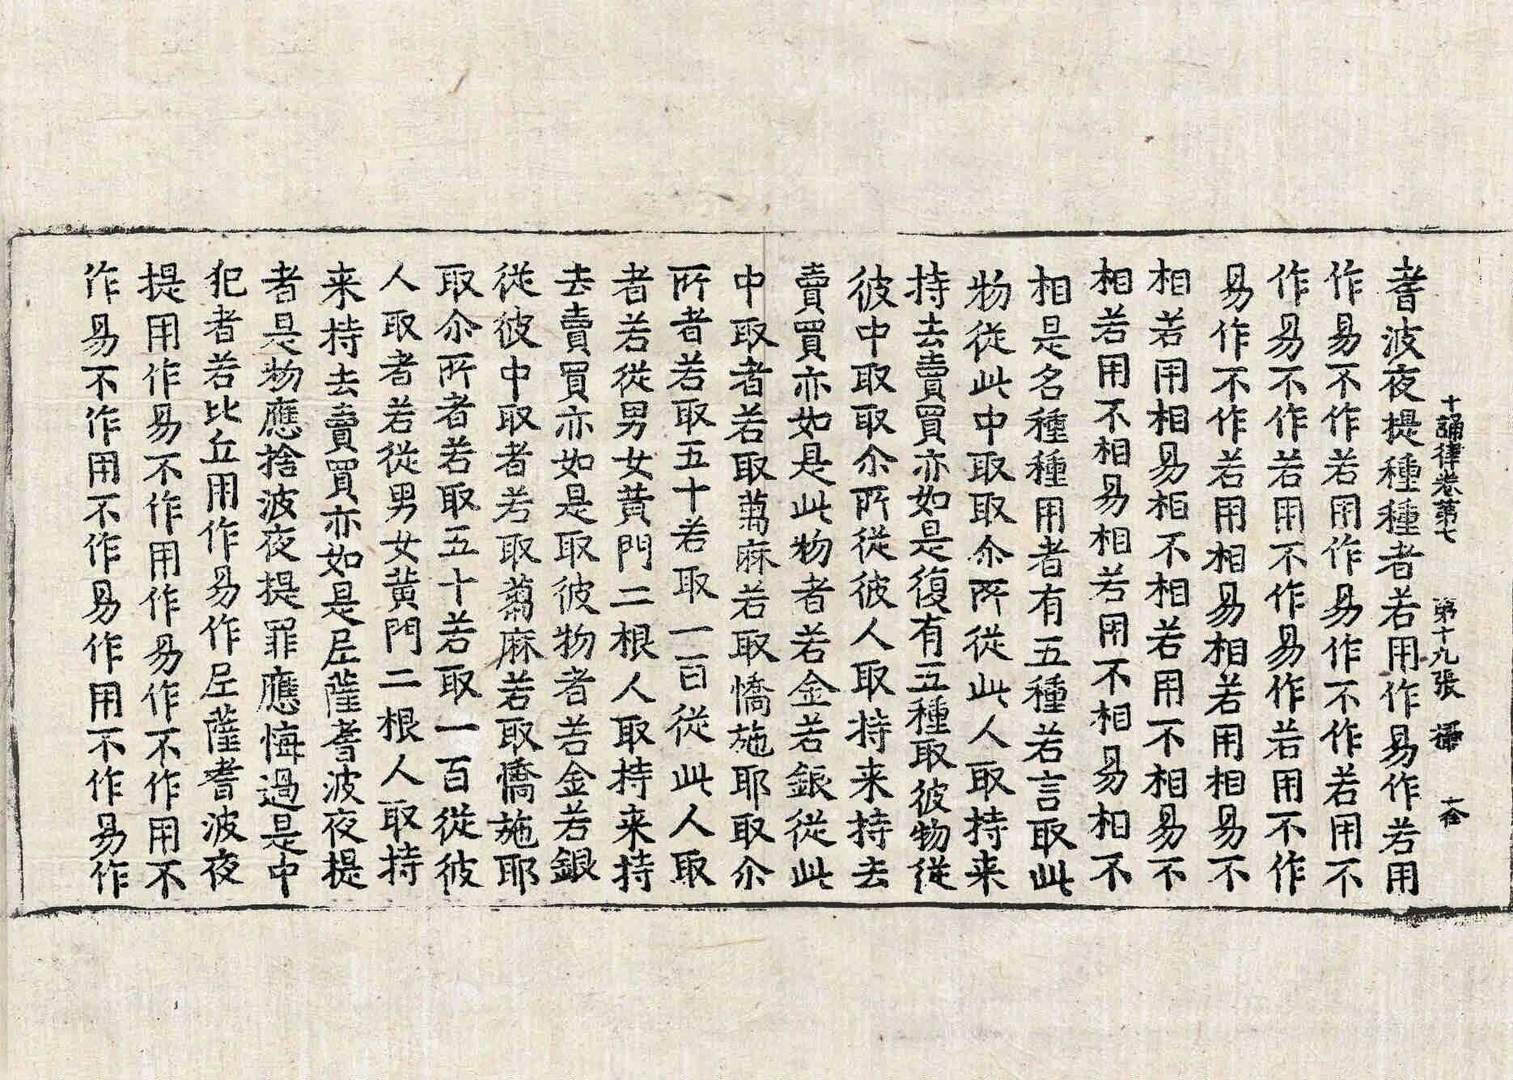 十誦律卷第七 第十九張 攝
耆波夜提種種者若用作易作若用
作易不作若用作易作不作若用不
作易不作若用不作易作若用不作
易作不作若用相易相若用相易不
相若用相易相不相若用不相易不
相若用不相易相若用不相易相不
相是名種種用者有五種若言取此
物從此中取取尒所從此人取持来
持去賣買亦如是復有五種取彼物從
彼中取取尒所從彼人取持来持去
賣買亦如是此物者若金若銀從此
中取者若取蒭麻若取憍施耶取尒
所者若取五十若取一百從此人取
者若從男女黃門二根人取持来持
去賣買亦如是取彼物者若金若銀
從彼中取者若取蒭麻若取憍施耶
取尒所者若取五十若取一百從彼
人取者若從男女黃門二根人取持
来持去賣買亦如是尼薩耆波夜提
者是物應捨波夜提罪應悔過是中
犯者若比丘用作易作尼薩耆波夜
提用作易不作用作易作不作用不
作易不作用不作易作用不作易作